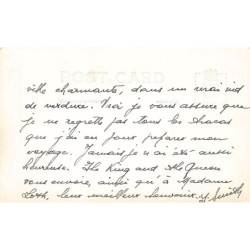 ville charmante, dans un vrai nid
POST CARD
de verdure. Vrai je vous assure que
je ne regrette pas tous les tracas
que j'ai eu pour préparer mon
voyage. Jamais je n'ai été aussi
heureuse. The King and the Queen
vous envoie, ainsi qu'à Madame
leur meilleur souvenir.